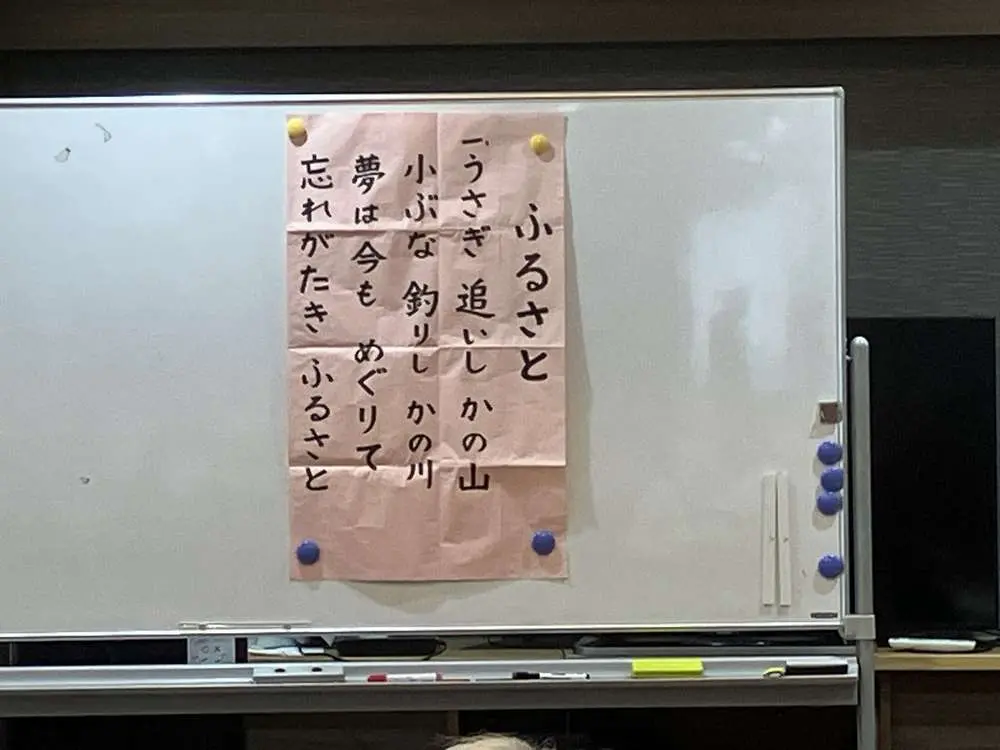 ふるさと
一うさぎ 追いし かの山
小ぶな 釣りし かの川
夢は今も めぐりて
忘れがたき ふるさと